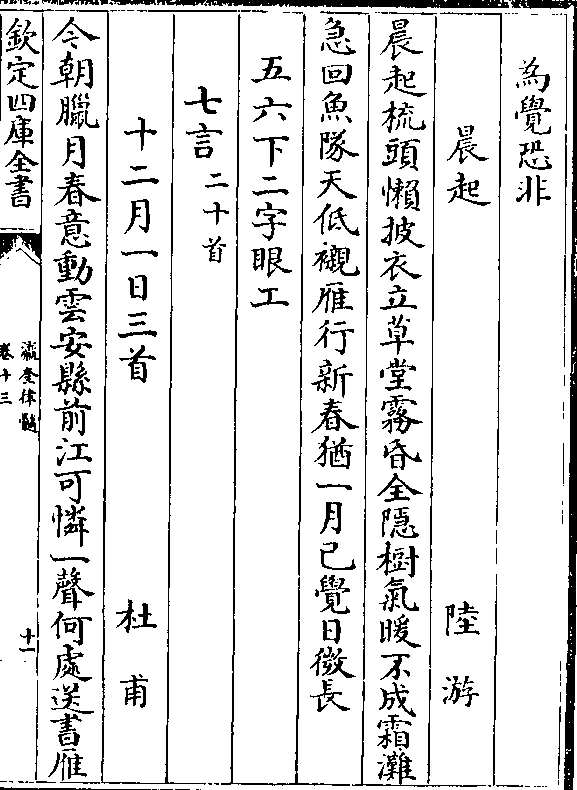 為覺恐非
晨起 陸游
晨起梳頭懶披衣立草堂霧昏全隱樹氣暖不成霜灘
急回魚隊天低襯雁行新春猶一月已覺日微長
五六下二字眼工
七言二十首
十二月一日三首 杜甫
今朝臘月春意動雲安縣前江可憐一聲何處送書雁
欽定四庫全書
瀛奎律髓
卷十三
十一